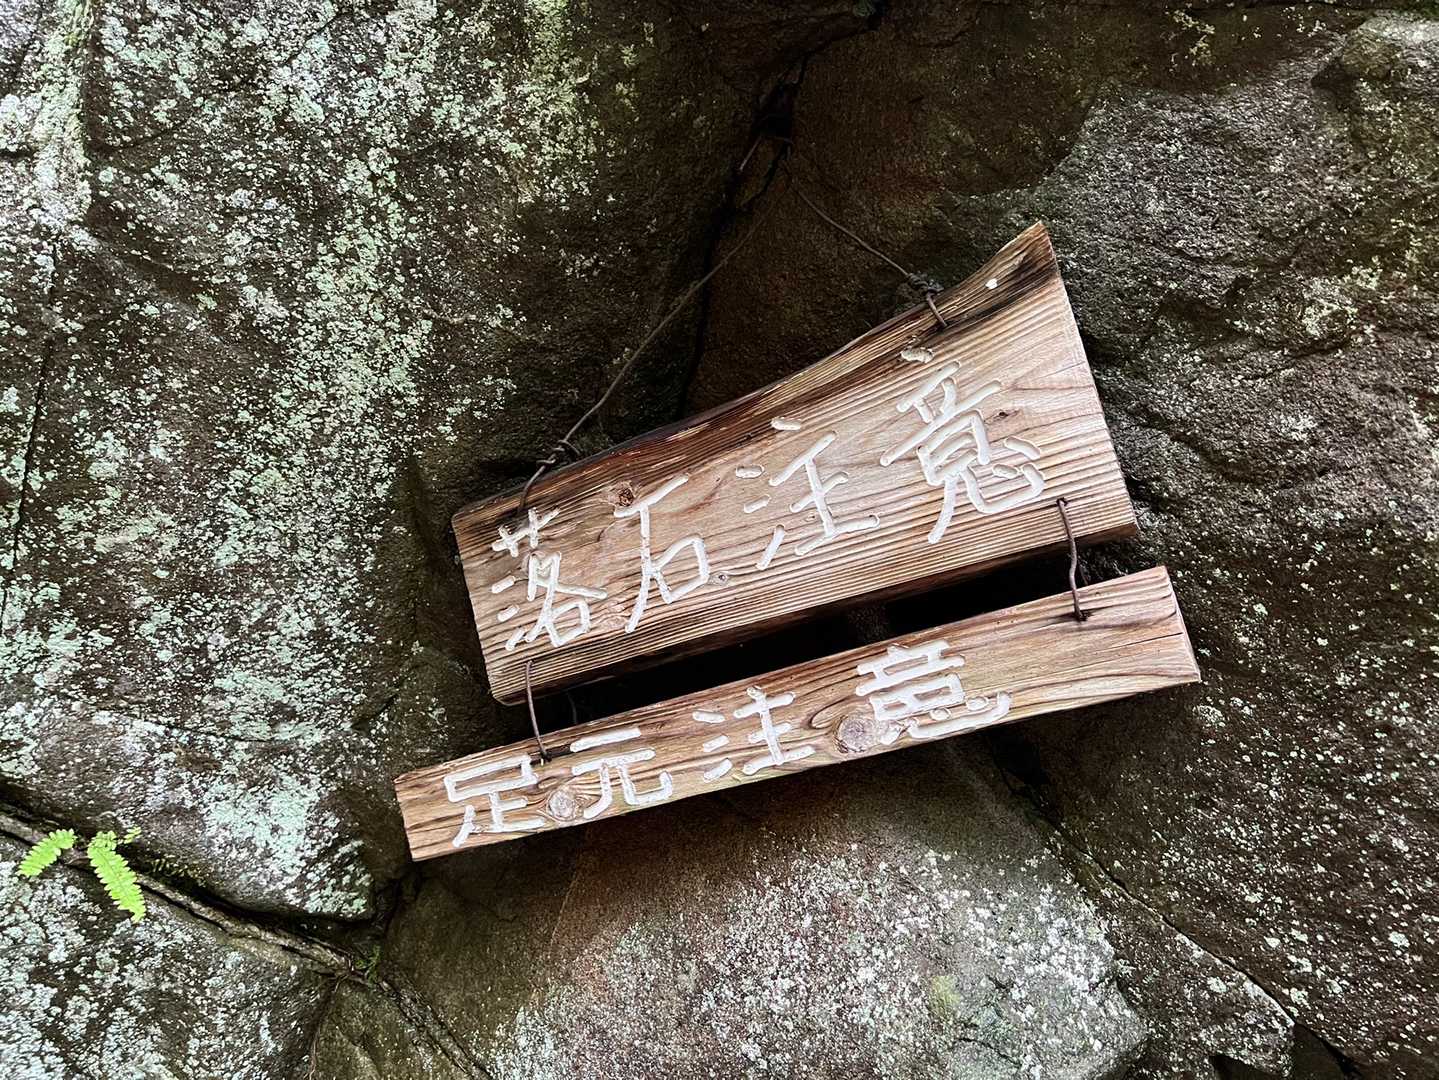 落石注意
足元注意